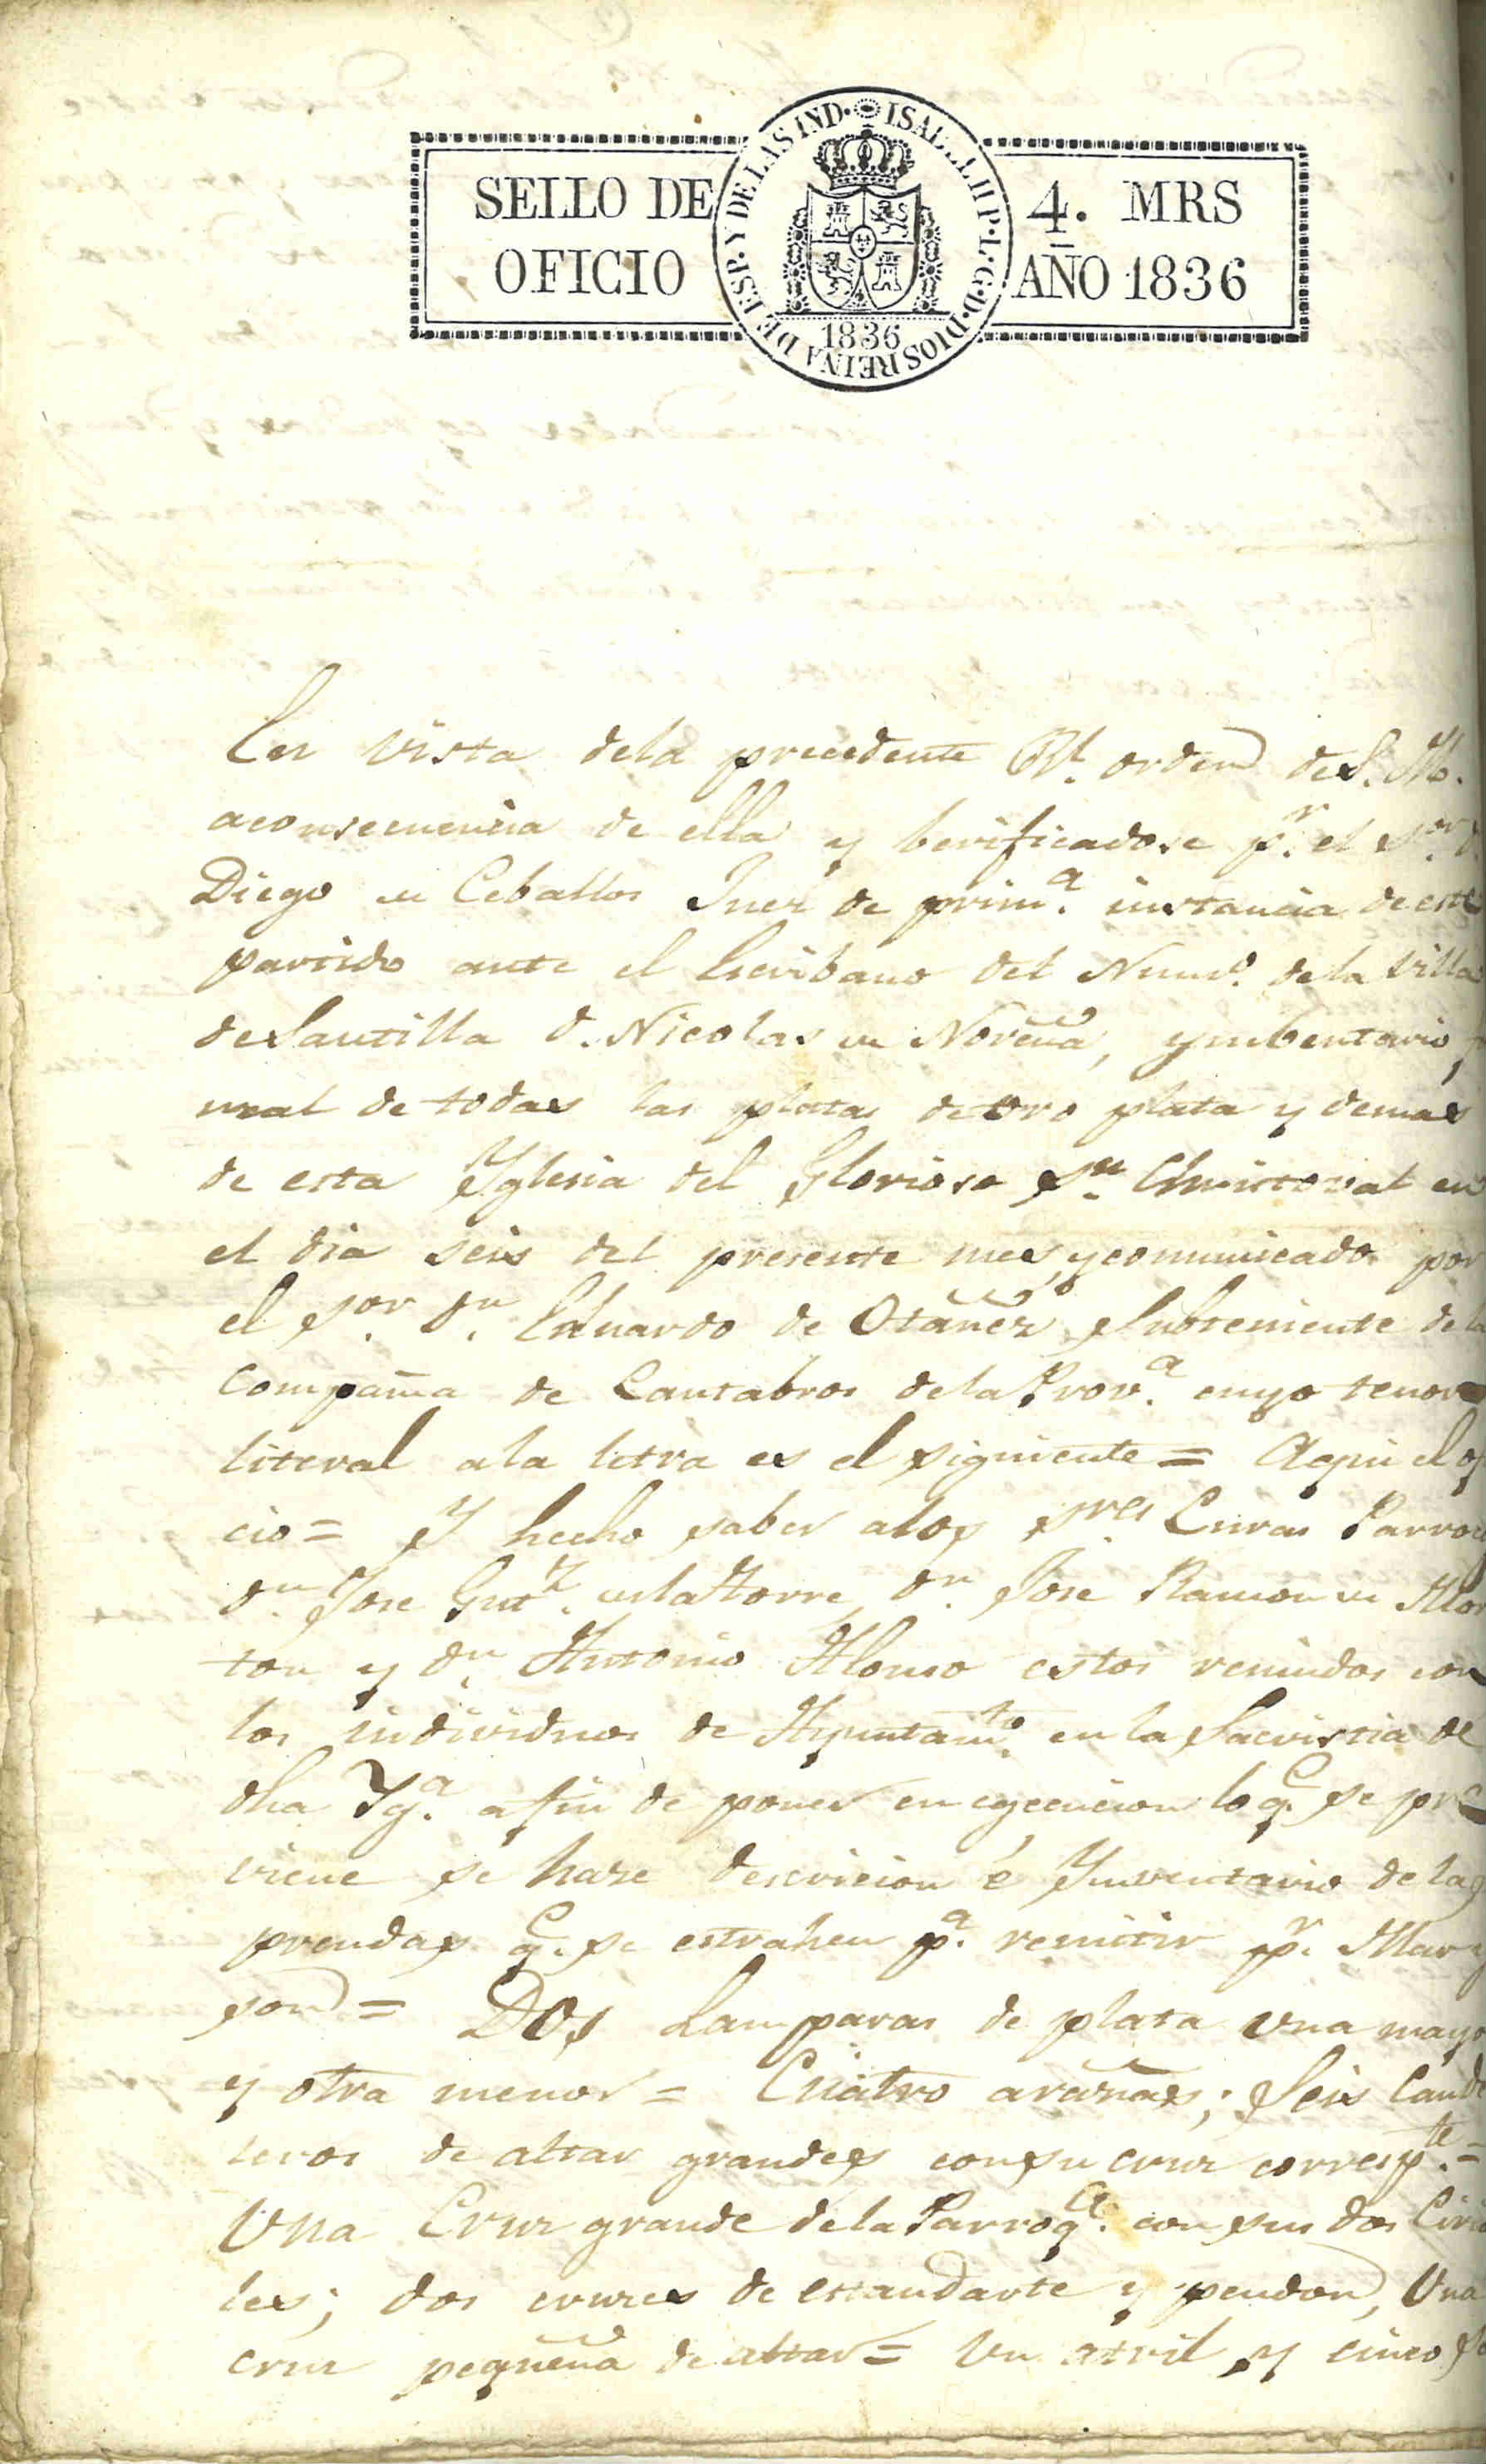 SELLO DE
OFICIO
ISABEL II P. L. G. D. DIOS REINA DE ESP. Y DE LAS IND.
1836
4. MRS
AÑO 1836
En vista dela precedente Rl. orden de S. M.
aconsecuencia de ella y berificadose pr. el Sor. D.
Diego de Ceballos Juez de prima. instancia de este
partido ante el Escribano del Numo. dela Villa
de Santilla D. Nicolas de Noreña, ymbentario
de todas las platas de oro plata y demas
de esta Yglesia del Glorioso Sn. Christoval en
el dia seis del presente mes, y comunicado por
el Sor. Dn. Eduardo de Otañez Subteniente dela
Compañia de Cantabros dela Prova. cuyo tenor
literal ala letra es el siguiente = Aqui el ofi
cio = Y hecho saber alos Sres. Curas Parrocos
Dn. Jose Gutz. dela Torre, Dn. Jose Ramon de
ton y Dn. Antonio Alonso estos reunidos con
los individuos de Ayuntamto. en la Sacristia de
dha Yga. afin de poner en egecucion lo q. se pre
viene se haze descricion é Ynventario de las
prendas q. se estrahen pa. remitir pr.
= Dos Lamparas de plata una mayor
y otra menor = Cuatro arañas; Seis Cande
leros de altar grandes con su cruz correspte. =
Una Cruz grande dela Parroqa. con sus dos Ciria
les; dos cruzes de estandarte y pendon, Una
cruz pequeña de altar = Un atril y cinco